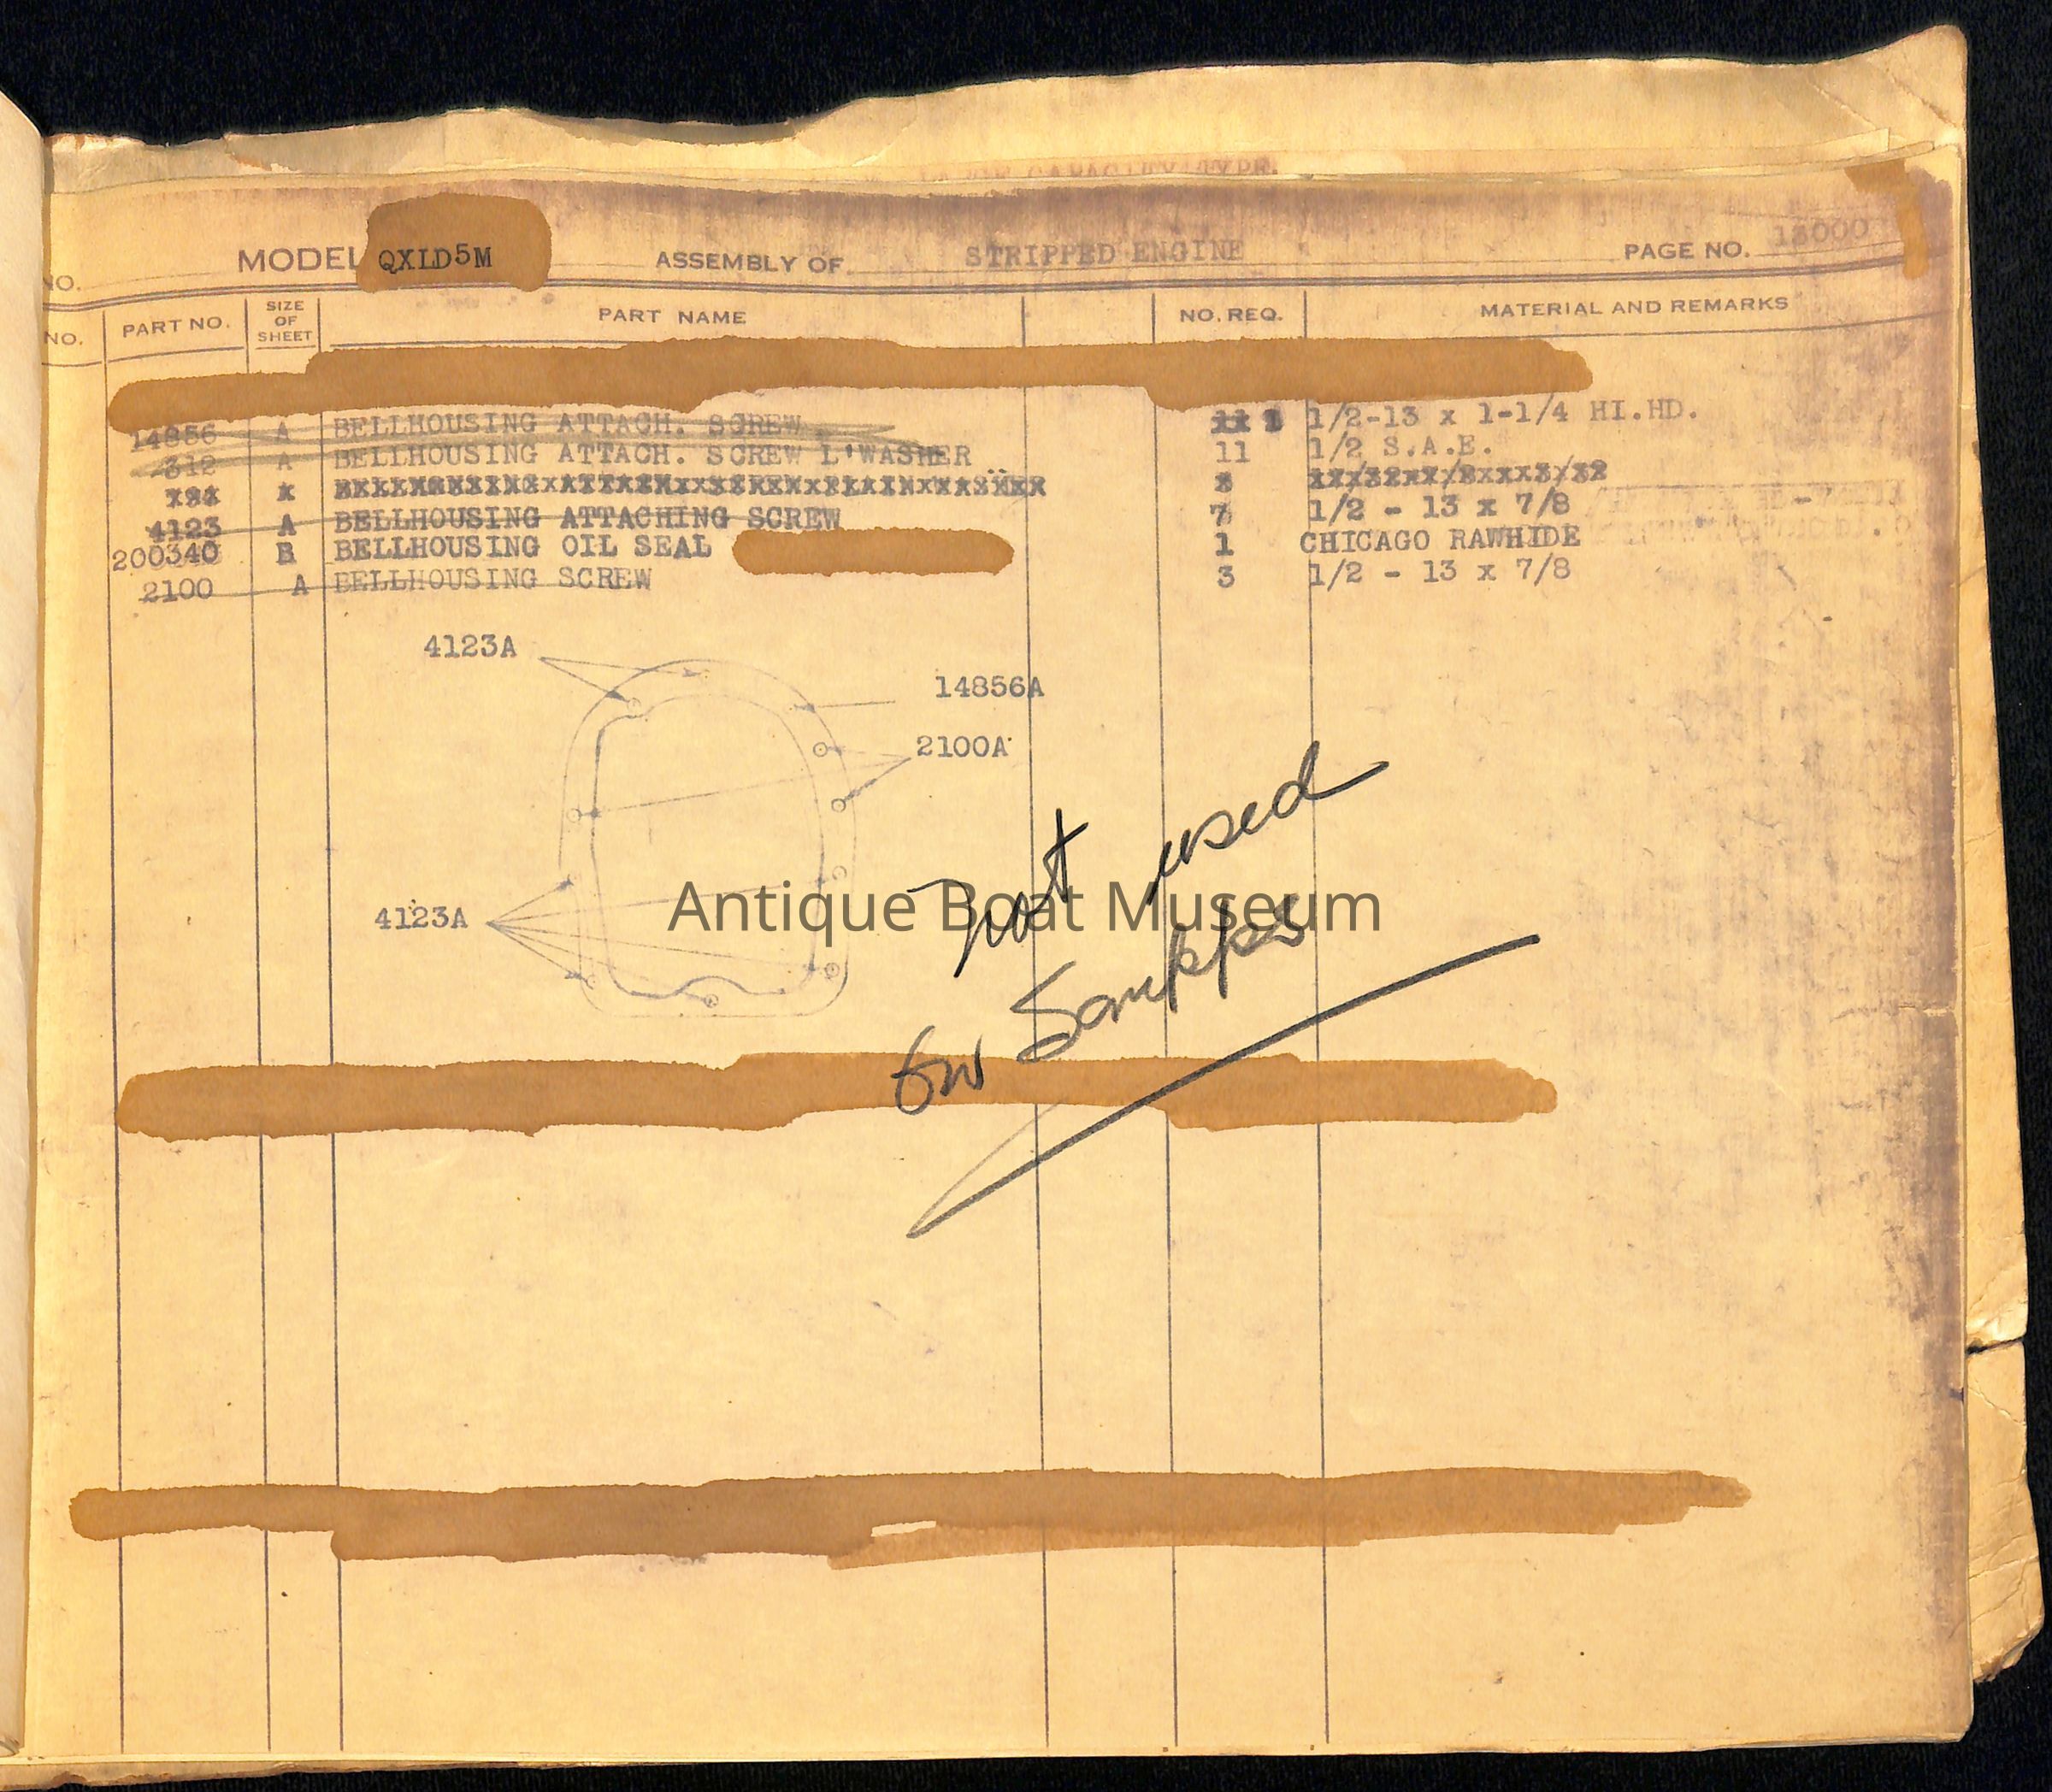 CAPACITY TYPE
NO. MODEL QXLD5M ASSEMBLY OF STRIPPED ENGINE PAGE NO. 13000
NO. PART NO. SIZE OF SHEET PART NAME NO. REQ. MATERIAL AND REMARKS
14856 A BELLHOUSING ATTACH. SCREW 1 1/2-13 x 1-1/4 HI.HD.
312 A BELLHOUSING ATTACH. SCREW L'WASHER 11 1/2 S.A.E.
4123 A BELLHOUSING ATTACHING SCREW 7 1/2 - 13 x 7/8
200340 B BELLHOUSING OIL SEAL 1 CHICAGO RAWHIDE
2100 A BELLHOUSING SCREW 3 1/2 - 13 x 7/8
4123A
14856A
2100A
4123A
not used
Antique Boat Museum